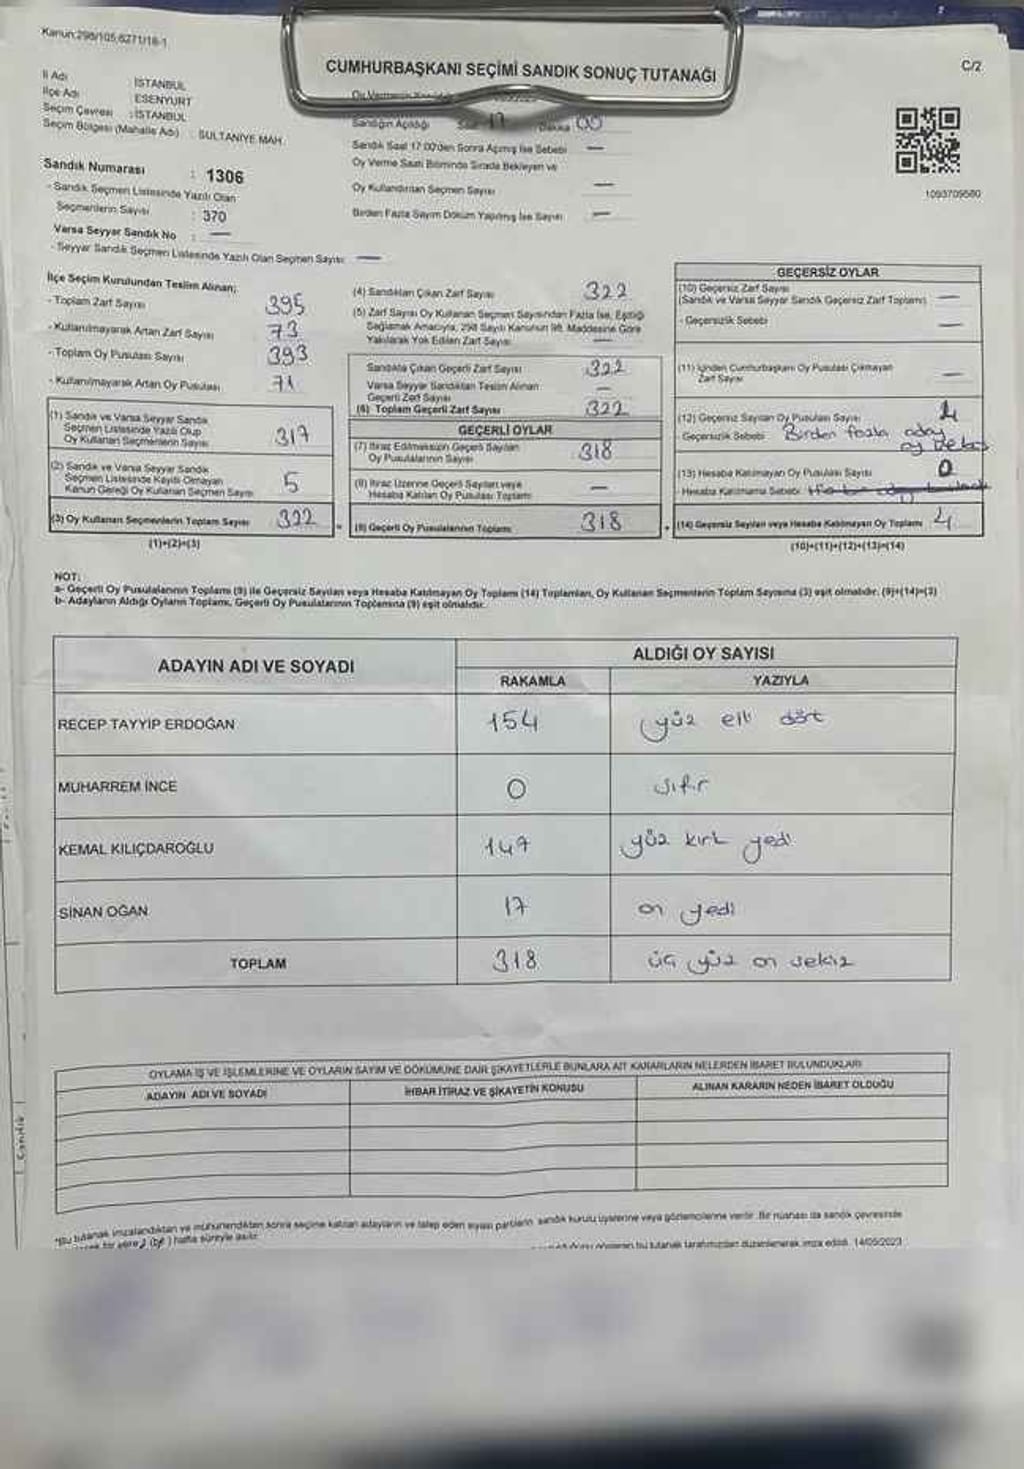 Kanun:298/105,6271/18-1
CUMHURBAŞKANI SEÇİMİ SANDIK SONUÇ TUTANAĞI
C/2
İl Adı : İSTANBUL
İlçe Adı : ESENYURT
Seçim Çevresi : İSTANBUL
Seçim Bölgesi (Mahalle Adı) : SULTANİYE MAH.
Sandık Numarası : 1306
- Sandık Seçmen Listesinde Yazılı Olan
Seçmenlerin Sayısı : 370
Varsa Seyyar Sandık No : —
- Seyyar Sandık Seçmen Listesinde Yazılı Olan Seçmen Sayısı: —
Sandığın Açıldığı Saat 17 Dakika 00
Sandık Saat 17:00'den Sonra Açılmış İse Sebebi —
Oy Verme Saati Bitiminde Sırada Bekleyen ve
Oy Kullandırılan Seçmen Sayısı —
Birden Fazla Sayım Döküm Yapılmış İse Sayısı —
1093709580
İlçe Seçim Kurulundan Teslim Alınan;
- Toplam Zarf Sayısı 395
- Kullanılmayarak Artan Zarf Sayısı 73
- Toplam Oy Pusulası Sayısı 393
- Kullanılmayarak Artan Oy Pusulası 71
(1) Sandık ve Varsa Seyyar Sandık
Seçmen Listesinde Yazılı Olup
Oy Kullanan Seçmenlerin Sayısı 317
(2) Sandık ve Varsa Seyyar Sandık
Seçmen Listesinde Kayıtlı Olmayan
Kanun Gereği Oy Kullanan Seçmen Sayısı 5
(3) Oy Kullanan Seçmenlerin Toplam Sayısı 322
(1)+(2)=(3)
(4) Sandıktan Çıkan Zarf Sayısı 322
(5) Zarf Sayısı Oy Kullanan Seçmen Sayısından Fazla İse, Eşitliği
Sağlamak Amacıyla, 298 Sayılı Kanunun 98. Maddesine Göre
Yakılarak Yok Edilen Zarf Sayısı —
Sandıkta Çıkan Geçerli Zarf Sayısı 322
Varsa Seyyar Sandıktan Teslim Alınan
Geçerli Zarf Sayısı —
(6) Toplam Geçerli Zarf Sayısı 322
GEÇERLİ OYLAR
(7) İtiraz Edilmeksizin Geçerli Sayılan
Oy Pusulalarının Sayısı 318
(8) İtiraz Üzerine Geçerli Sayılan veya
Hesaba Katılan Oy Pusulası Toplamı —
= (9) Geçerli Oy Pusulalarının Toplamı 318
GEÇERSİZ OYLAR
(10) Geçersiz Zarf Sayısı
(Sandık ve Varsa Seyyar Sandık Geçersiz Zarf Toplamı) —
- Geçersizlik Sebebi —
(11) İçinden Cumhurbaşkanı Oy Pusulası Çıkmayan
Zarf Sayısı —
(12) Geçersiz Sayılan Oy Pusulası Sayısı 4
- Geçersizlik Sebebi Birden fazla aday
(13) Hesaba Katılmayan Oy Pusulası Sayısı 0
- Hesaba Katılmama Sebebi
+ (14) Geçersiz Sayılan veya Hesaba Katılmayan Oy Toplamı 4
(10)+(11)+(12)+(13)=(14)
NOT:
a- Geçerli Oy Pusulalarının Toplamı (9) ile Geçersiz Sayılan veya Hesaba Katılmayan Oy Toplamı (14) Toplamları, Oy Kullanan Seçmenlerin Toplam Sayısına (3) eşit olmalıdır. (9)+(14)=(3)
b- Adayların Aldığı Oyların Toplamı, Geçerli Oy Pusulalarının Toplamına (9) eşit olmalıdır.
ADAYIN ADI VE SOYADI
ALDIĞI OY SAYISI
RAKAMLA YAZIYLA
RECEP TAYYİP ERDOĞAN 154 yüz elli dört
MUHARREM İNCE 0 sıfır
KEMAL KILIÇDAROĞLU 147 yüz kırk yedi
SİNAN OĞAN 17 on yedi
TOPLAM 318 üç yüz on sekiz
OYLAMA İŞ VE İŞLEMLERİNE VE OYLARIN SAYIM VE DÖKÜMÜNE DAİR ŞİKAYETLERLE BUNLARA AİT KARARLARIN NELERDEN İBARET BULUNDUKLARI
ADAYIN ADI VE SOYADI İHBAR İTİRAZ VE ŞİKAYETİN KONUSU ALINAN KARARIN NEDEN İBARET OLDUĞU
*Bu tutanak imzalandıktan ve mühürlendikten sonra seçime katılan adayların ve talep eden siyasi partilerin sandık kurulu üyelerine veya gözlemcilerine verilir. Bir nüshası da sandık çevresinde
bir yere (bir) hafta süreyle asılır.
bu tutanak tarafımızdan düzenlenerek imza edildi. 14/05/2023